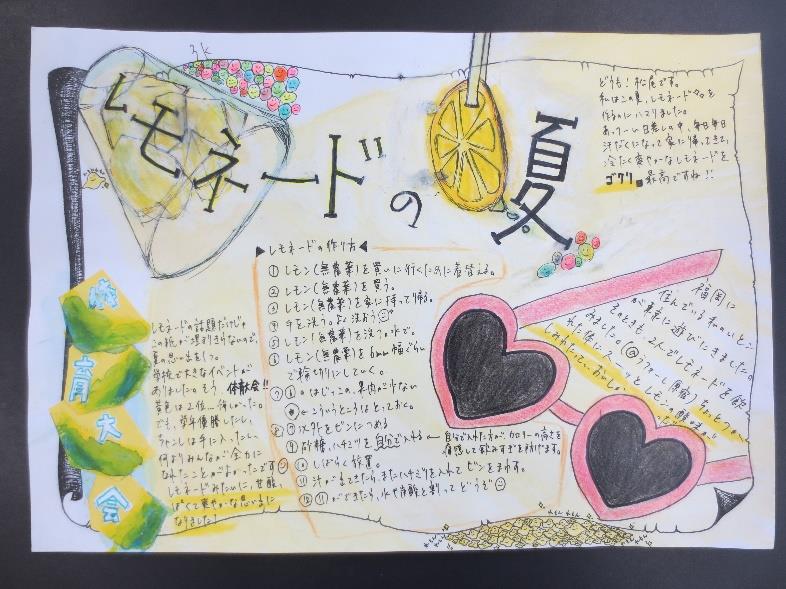 レモネードの夏
どうも！松尾です。
私はこの夏、レモネードを
作るのにハマりました。
あつーい日差しの中、毎日毎日
汗だくになって家に帰ってきて、
冷たく爽やかなレモネードを
ゴクリ 最高ですね!!
▶レモネードの作り方◀
① レモン(無農薬)を買いに行くために着替える。
② レモン(無農薬)を買う。
③ レモン(無農薬)を家に持って帰る。
④ 手を洗う。よく洗おう
⑤ レモン(無農薬)を洗う。水で。
⑥ レモン(無農薬)を6mm幅ぐらい
で輪切りにしていく。
⑦ ⑥のはじっこの、果肉が少ない
←こういうところはとっておく。
⑧ ⑦以外をビンにつめる
⑨ 砂糖、ハチミツを自分で入れる
← 自分で入れた方が、カロリーの高さを
実感して飲みすぎを防げます。
⑩ しばらく放置。
⑪ 汁が出てきたら、またハチミツを入れてビンをまわす。
⑫ ⑪ができたら、水や炭酸と割ってどうぞ
福岡に
住んでいる私のいとこ
が東に遊びにきました。
そのときも、2人でレモネードを飲
みました。
体育大会
レモネードの話題だけじゃ
この紙が埋まりきらないので、
夏の思い出をもう1つ。
学校で大きなイベントが
ありました。そう 体育大会!!
でも、学年優勝したし、
何よりみんなが全力に
なれたことがよかったです
レモネードみたいに、甘酸っ
ぱくて爽やかな思い出に
なりました！